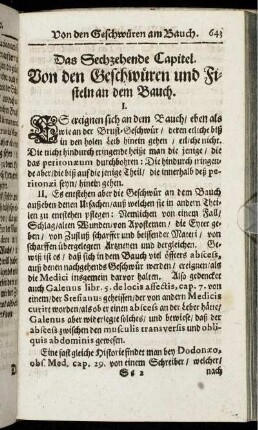 Von den Geschwüren am Bauch. 643
Das Sechzehende Capitel.
Von den Geschwüren und Fi-
steln an dem Bauch.
I.
ES ereignen sich an dem Bauch / eben als
wie an der Brust-Geschwür / deren etliche biß
in den holen Leib hinein gehen / etliche nicht.
Die nicht hindurch tringende heißt man die jenige / die
das peritonæum durchbohren: Die hindurch tringen-
de aber / die biß auf die jenige Theil / die innerhalb deß pe-
ritonæi seyn / hinein gehen.
II. Es entstehen aber die Geschwür an dem Bauch
aus eben den Ursachen / auß welchen sie in andern Thei-
len zu entstehen pflegen: Nemlichen von einem Fall /
Schlag / alten Wunden / von Apostemen / die Eyter ge-
ben / von Zufluß scharffer und beissender Materi / von
scharffen übergelegten Artzneyen und dergleichen. Ge-
wiß ist es / daß sich in dem Bauch viel öfters abscess,
auß denen nachgehends Geschwür werden / ereignen / als
die Medici insgemein darvor halten. Also gedencket
auch Galenus libr. 5. de locis affectis, cap. 7. von
einem / der Stefianus geheissen / der von andern Medicis
curirt worden / als ob er einen abscess an der Leber hätte /
Galenus aber widerlegte solches / und bewiese / daß der
abscess zwischen den musculis transversis und obli-
quis abdominis gewesen.
Eine fast gleiche Historie findet man bey Dodonæo,
obs. Med. cap. 29. von einem Schreiber / welcher /
Ss 2 nach